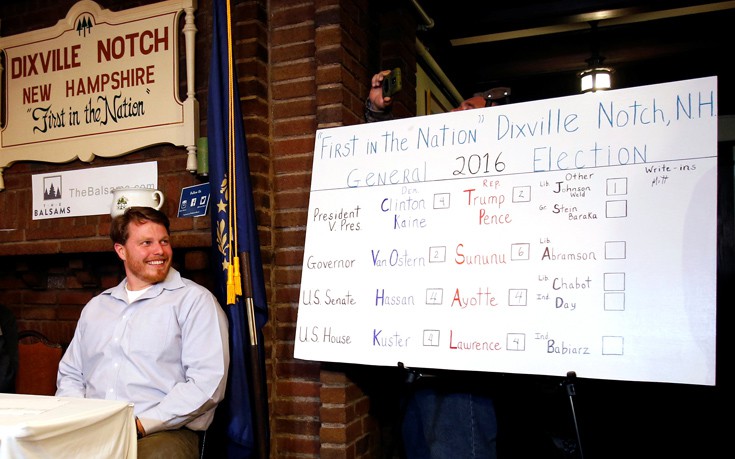 DIXVILLE NOTCH
NEW HAMPSHIRE
"First in the Nation"
THE
BALSAMS
TheBalsams.com
"First in the "Nation" Dixville Notch, NH
General 2016 Election
Dem. Rep. Other Write-ins
President Clinton 4 Trump 2 Lib Johnson Weld 1
V. Pres. Kaine Pence Gr. Stein Baraka
Governor Van Ostern 2 Sununu 6 Lib Abramson
U.S. Senate Hassan 4 Ayotte 4 Lib Chabot
Ind Day
U.S. House Kuster 4 Lawrence 4 Ind Babiarz